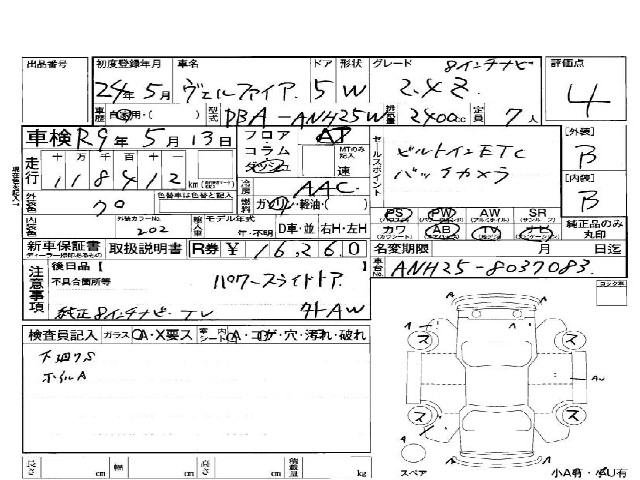 出品番号 初度登録年月 車名 ドア 形状 グレード 8インチナビ 評価点
24年 5月 ヴェルファイア 5 W 2.4Z 4
車歴 自家用・( ) 型式 DBA-ANH25W 排気量 2400cc 定員 7人
車検 R9年 5月 13日 フロア・コラム AT MTのみ記入 速 セールスポイント ビルトインETC [外装] B
走行 十 万 千 百 十 一 バックカメラ
118412 km 冷房 AAC [内装] B
外装色 クロ 色替車は色替と記入 燃料 ガソリン・軽油・( ) PS PW AW SR
内装色 外装カラーNo. 202 輸入車 モデル年式 年・不明 D車・並 右H・左H カワ AB TV ナビ 純正品のみ丸印
新車保証書 取扱説明書 R券 ¥ 16,260 名変期限 月 日迄
注意事項 後日品【 】 車台No. ANH25-8037083
不具合箇所等 パワースライドドア
純正8インチナビ・TV 外AW コック車
検査員記入 ガラス OA・X要ス 室内シート A・コゲ・穴・汚れ・破れ
下廻りS
ホイルA
長さ cm 幅 cm 高さ cm 積載量 kg
A A
ス ス
A
ス ス
A
スペア 小A有・小U有